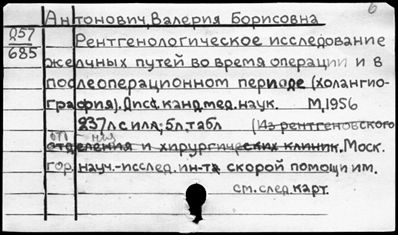 б
Антонович, Валерия Борисовна
Д57
685
Рентгенологическое исследование
желчных путей во время операции и в
послеоперационном периоде (холангио-
графия). Дисс. канд. мед. наук. М, 1956
237 л с илл; 5 л. табл (Из рентгеновского
отп ния
отделения и хирургических клиник. Моск.
гор. науч.-исслед. ин-та скорой помощи им.
см. след. карт.